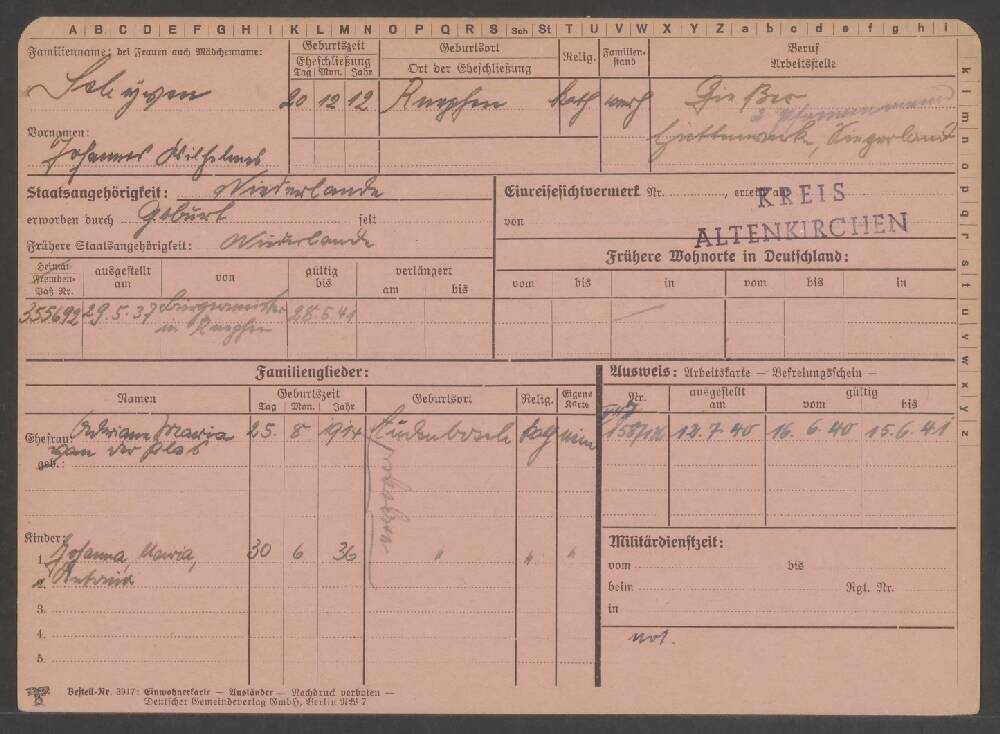 A B C D E F G H I K L M N O P Q R S Sch St T U V W X Y Z a b c d e f g h i
k l m n o p q r s t u v w x y z
Familienname: bei Frauen auch Mädchenname:
Geburtszeit
Eheschließung
Tag Mon. Jahr
Geburtsort
Ort der Eheschließung
Relig.
Familienstand
Beruf
Arbeitsstelle
20 12 12 Rucphen kath verh Gießer
Hüttenwerke, Siegerland
Vornamen:
Johannes Wilhelmus
Staatsangehörigkeit: Niederlande
erworben durch Geburt seit
Frühere Staatsangehörigkeit: Niederlande
Einreisesichtvermerk Nr. , erteilt am
von
KREIS
ALTENKIRCHEN
Frühere Wohnorte in Deutschland:
vom bis in vom bis in
Heimat-
Fremden-
Paß Nr.
ausgestellt am von gültig bis verlängert am bis
355692 29.5.37 Bürgermeister in Rucphen 28.5.41
Familienglieder:
Namen Geburtszeit Tag Mon. Jahr Geburtsort Relig. Eigene Karte
Ehefrau: Adriana Maria 25. 8 1914 Oudenbosch kath nein
van der
geb.:
Kinder:
1. Johanna, Maria, 30 6 36 " " "
2.
3.
4.
5.
Ausweis: Arbeitskarte — Befreiungsschein —
Nr. ausgestellt am gültig vom bis
12.7.40 16.6.40 15.6.41
Militärdienstzeit:
vom bis
beim Rgt. Nr.
in
Bestell-Nr. 3917: Einwohnerkarte — Ausländer — Nachdruck verboten —
Deutscher Gemeindeverlag GmbH, Berlin NW 7